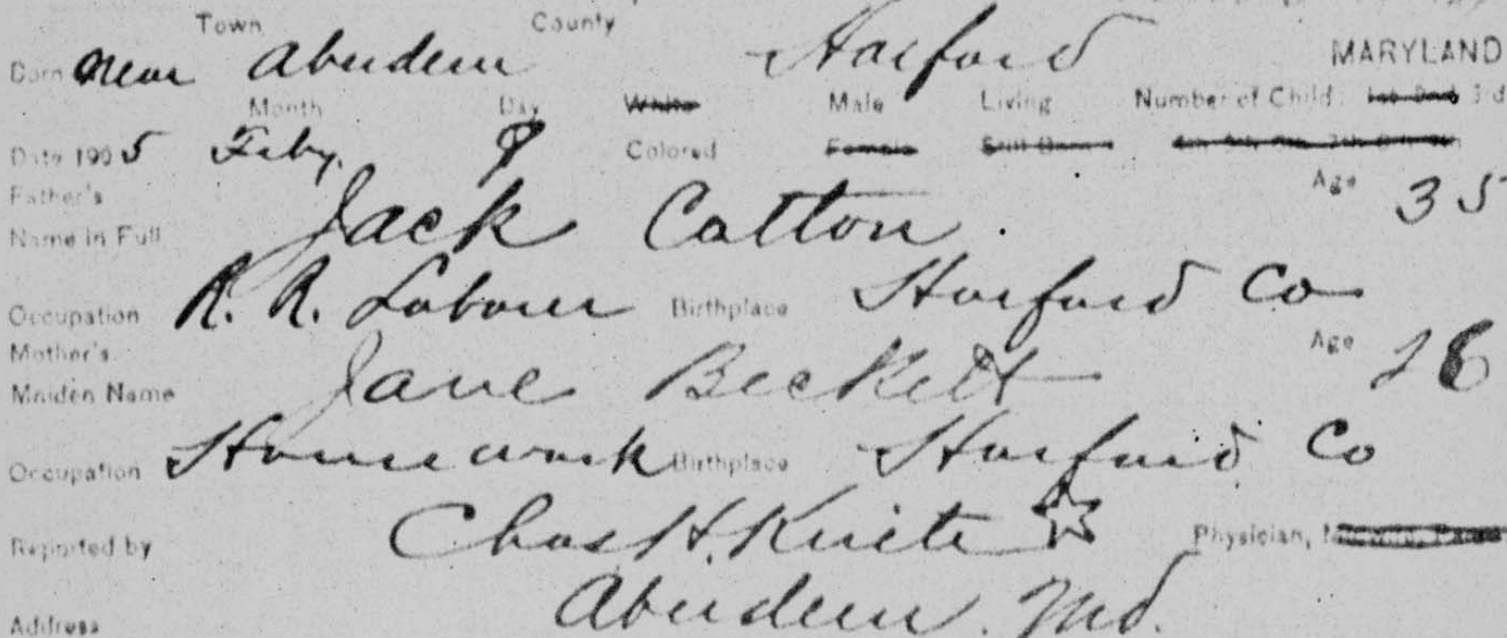 Town County
Born near Aberdeen Harford MARYLAND
Month Day White Male Living Number of Child 1st 2nd 3d
Date 1905 Feby. Colored Female Still Born
Father's Age 35
Name in Full Jack Catton.
Occupation R. R. Laborer Birthplace Harford Co
Mother's Age 26
Maiden Name Jane Beckett
Occupation Housework Birthplace Harford Co
Reported by Chas H. Physician,
Address Aberdeen. Md.